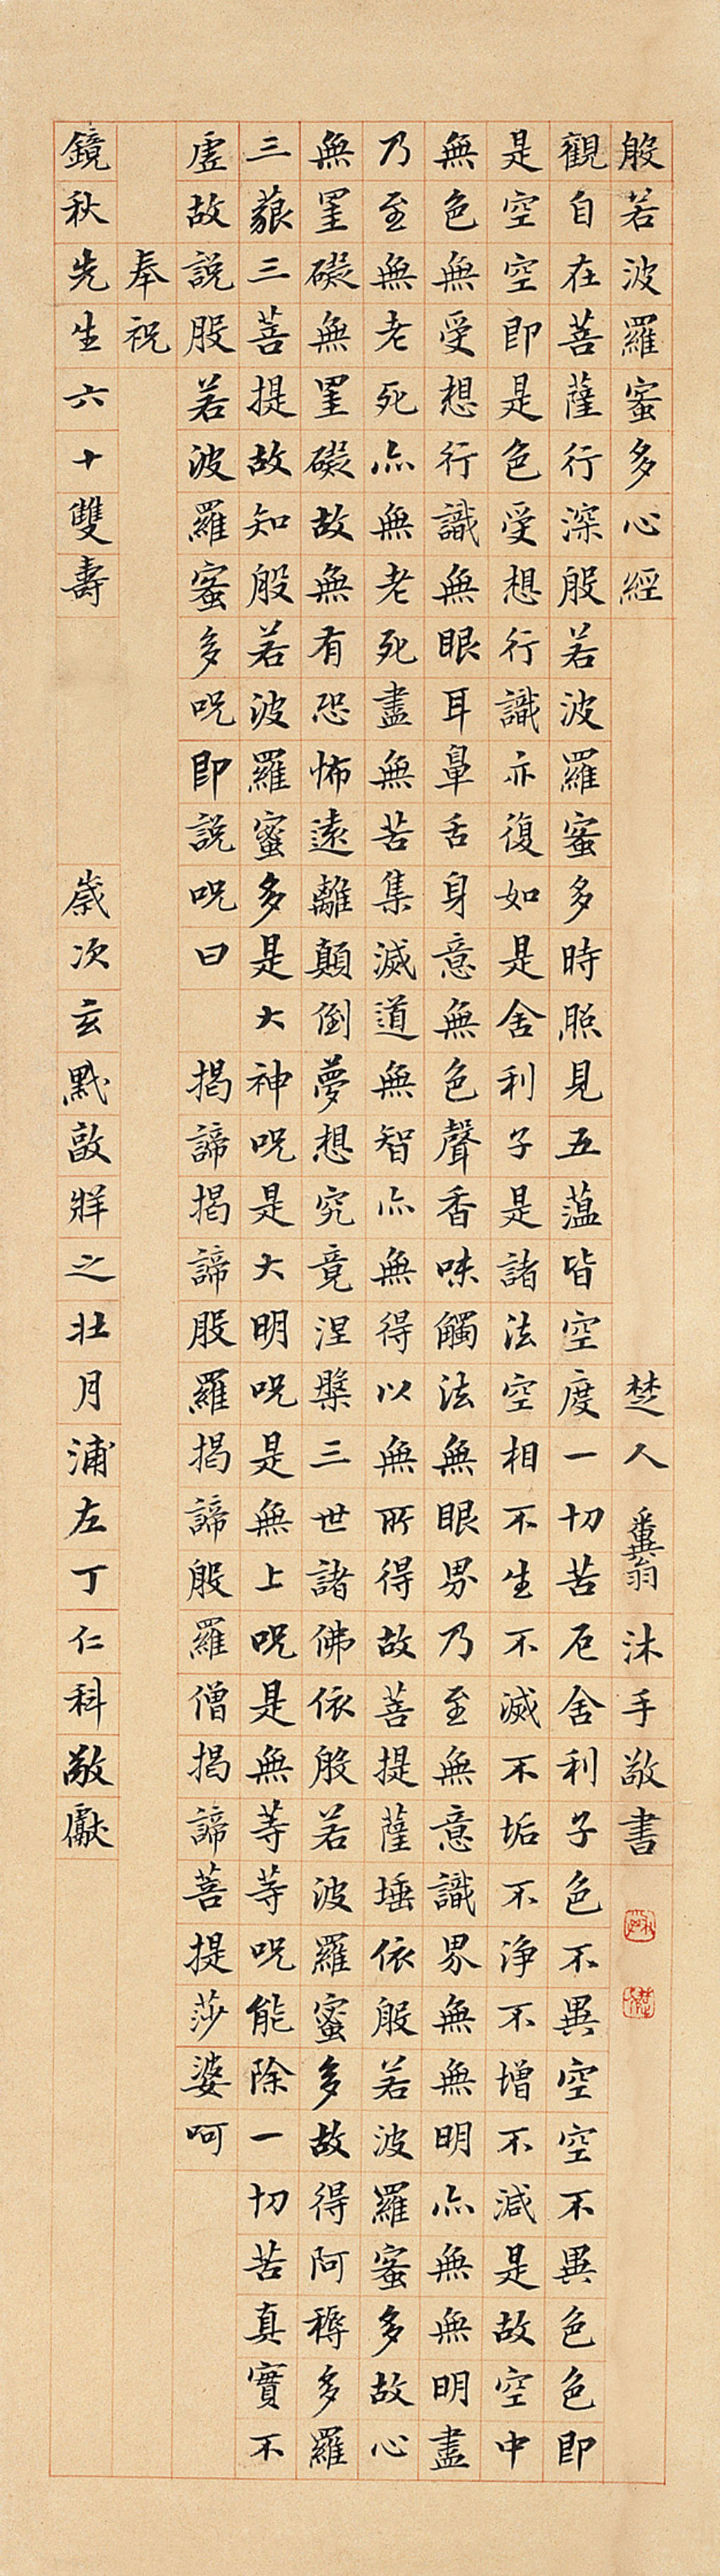 般若波羅蜜多心經 楚人 糞翁 沐手敬書
觀自在菩薩行深般若波羅蜜多時照見五蕰皆空度一切苦厄舍利子色不異空空不異色色即
是空空即是色受想行識亦復如是舍利子是諸法空相不生不滅不垢不淨不增不減是故空中
無色無受想行識無眼耳鼻舌身意無色聲香味觸法無眼界乃至無意識界無無明亦無無明盡
乃至無老死亦無老死盡無苦集滅道無智亦無得以無所得故菩提薩埵依般若波羅蜜多故心
無罣礙無罣礙故無有恐怖遠離顛倒夢想究竟涅槃三世諸佛依般若波羅蜜多故得阿耨多羅
三藐三菩提故知般若波羅蜜多是大神呪是大明呪是無上呪是無等等呪能除一切苦真實不
虛故說般若波羅蜜多呪即說呪曰 揭諦揭諦般羅揭諦般羅僧揭諦菩提莎婆呵
奉祝
鏡秋先生六十雙壽 歲次玄黓敦牂之壯月浦左丁仁科敬獻